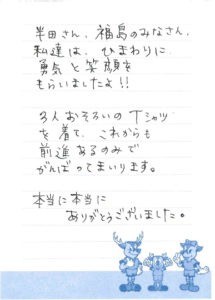 半田さん、福島のみなさん、
私達は、ひまわりに
勇気と笑顔を
もらいましたよ!!
3人おそろいのTシャツ
を着て、これからも
前進あるのみで
がんばってまいります。
本当に本当に
ありがとうございました。